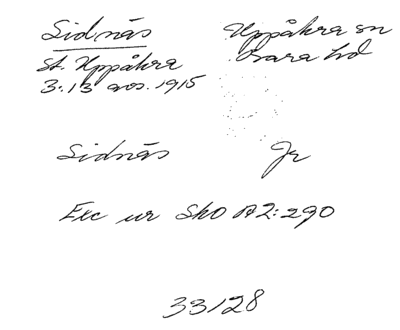 Sidnäs
St. Uppåkra
3.13 avs. 1915
Uppåkra sn
Bara hd
Sidnäs Jr
Exc ur SkO A2:290
33128